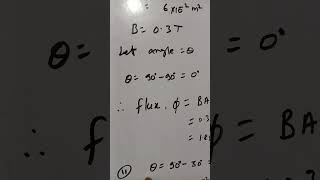 = 6×10² m²
B = 0.3 T
Let angle = θ
θ = 90° - 90° = 0°
∴ flux, ϕ = BA
= 0.3
= 1.8
(11) θ = 90° - 30° =
= 0°
∴ ϕ = BA